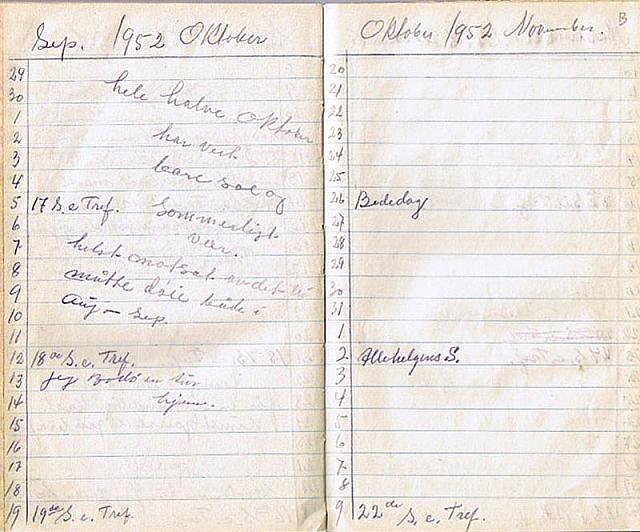 Sep. 1952 Oktober
29
30 hele halve Oktober
1
2 har veit
3
4 bare sol og
5 17 S. e Tref. Sommerligt
6 vær.
7 helst motsat av det vi
8 måtte döie både i
9
10 Aug - Sep.
11
12 18de S. e. Tref.
13 Jeg Bodö en tür
14 hjem.
15
16
17
18
19 19de S. e. Tref.
Oktober 1952 November. B
20
21
22
23
24
25
26 Bededag
27
28
29
30
31
1
2 Allehelgens S.
3
4
5
6
7
8
9 22de S. e. Tref.